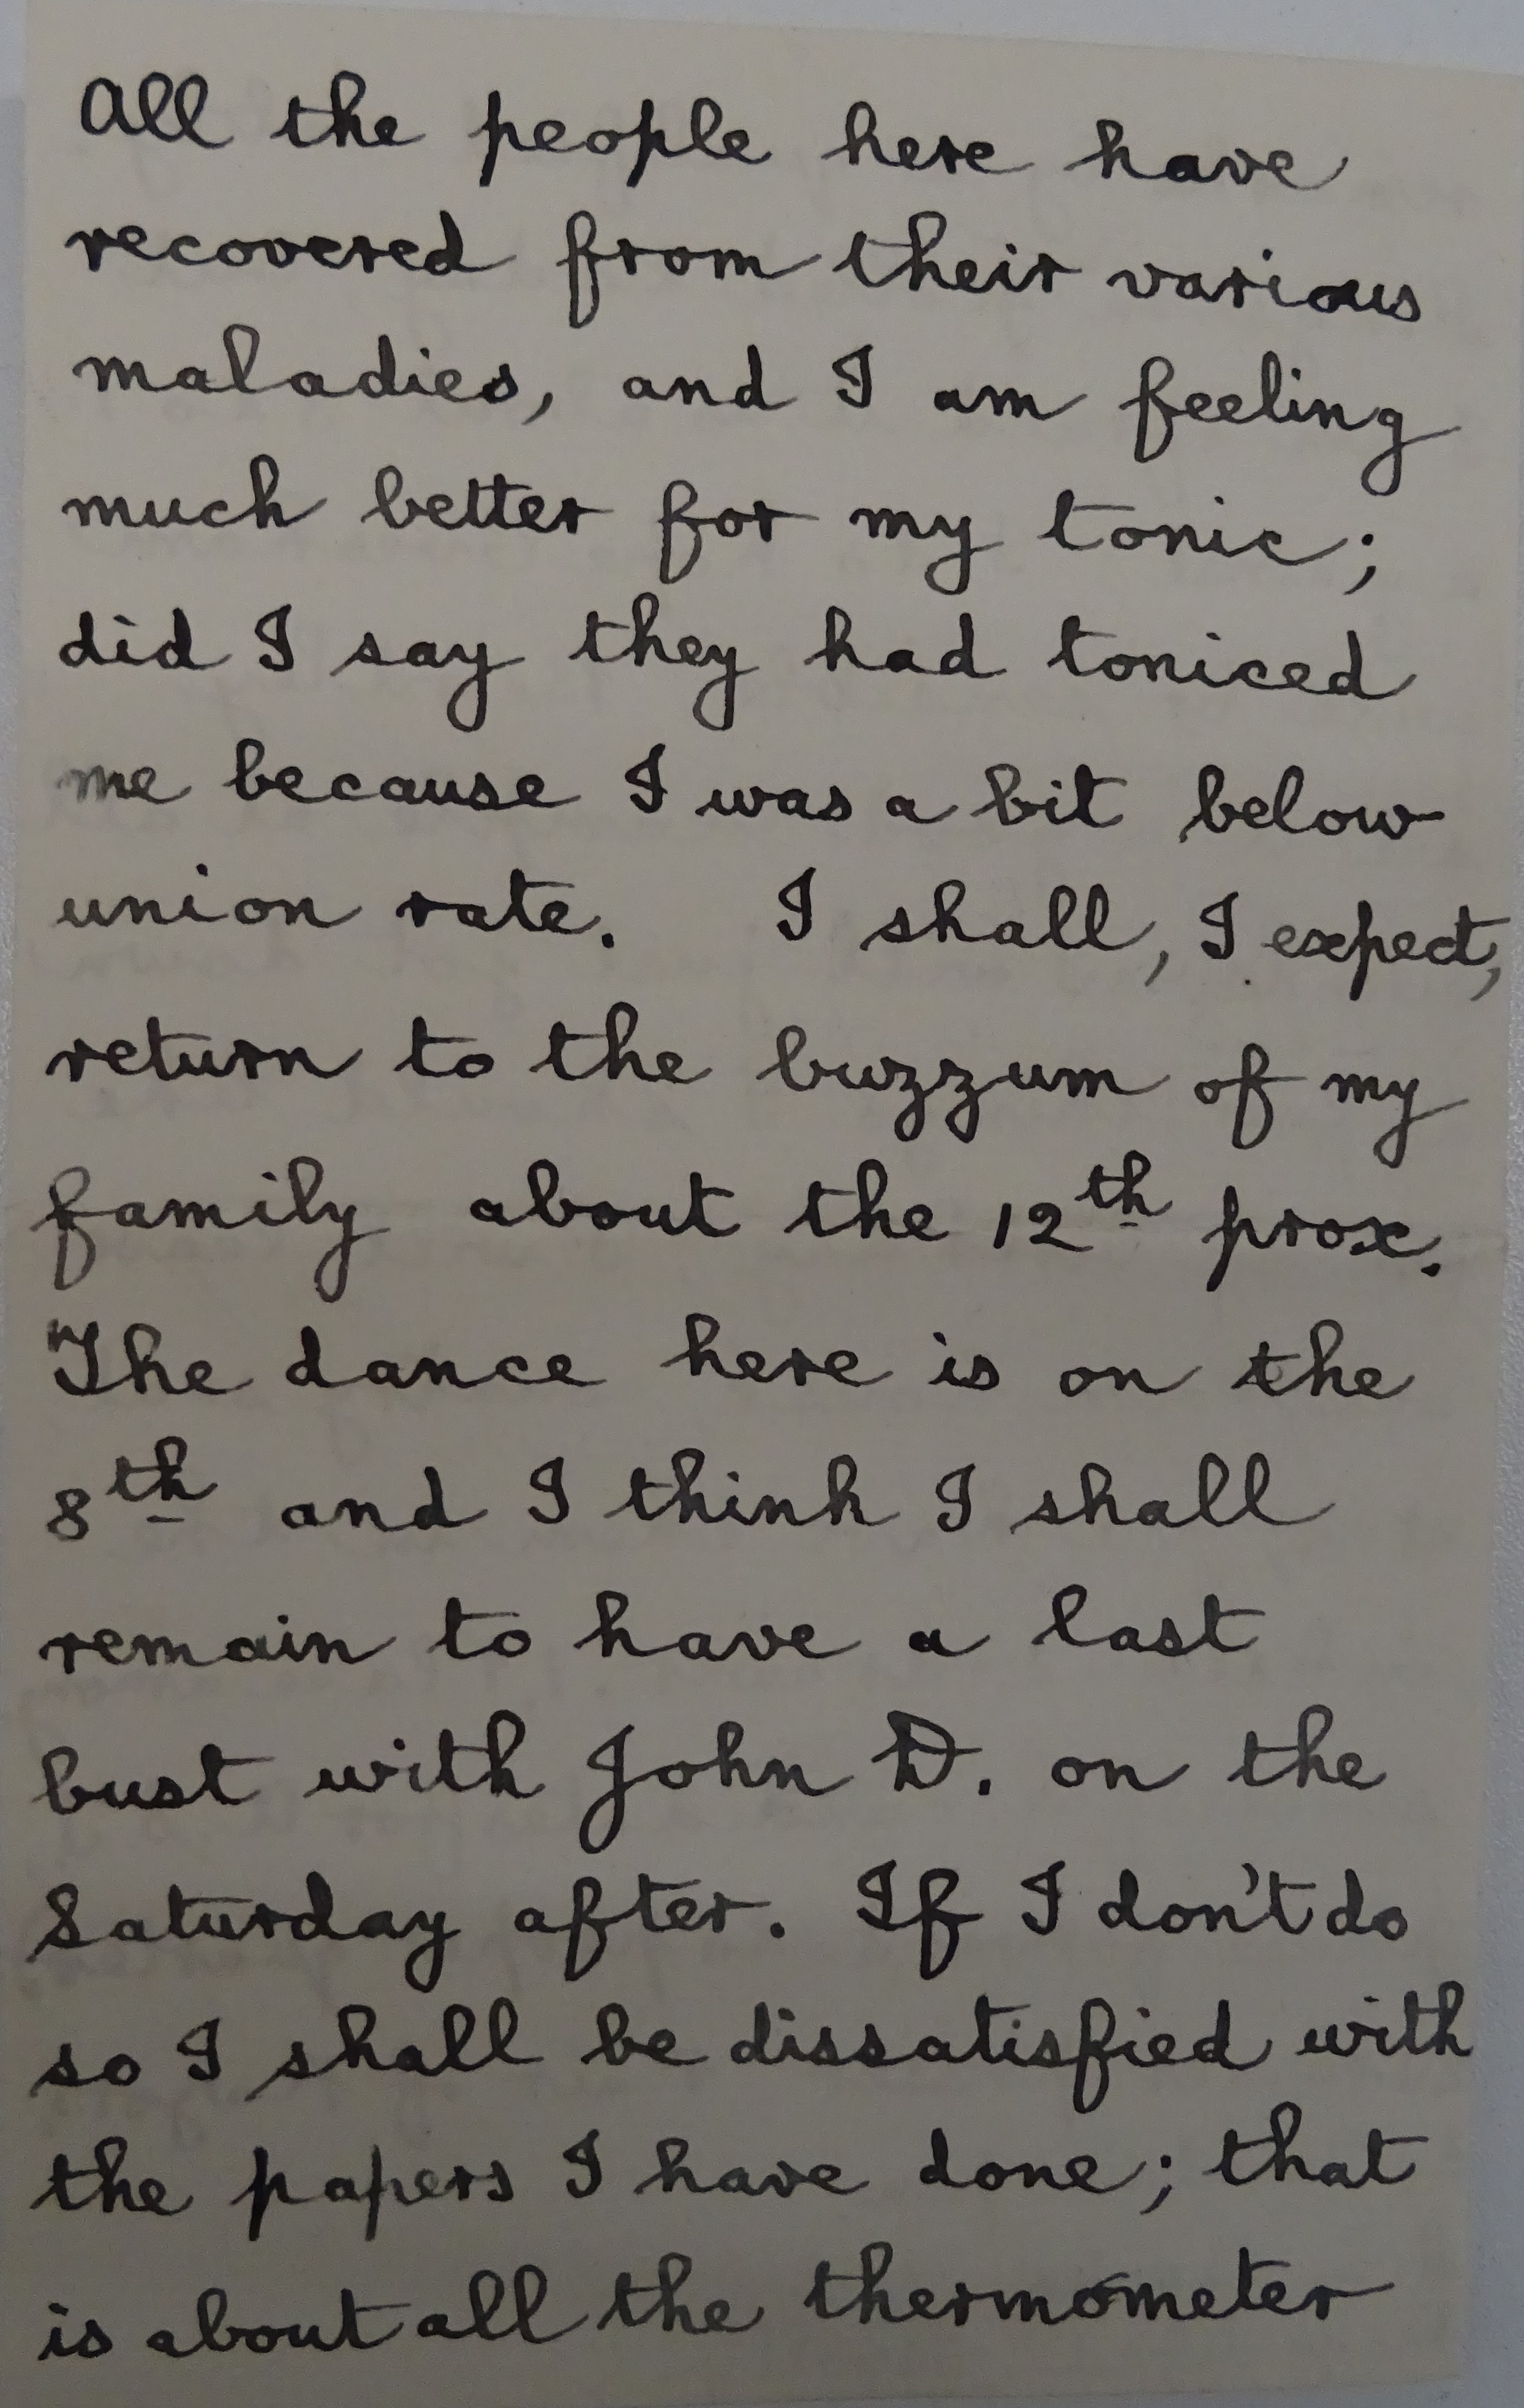 All the people here have
recovered from their various
maladies, and I am feeling
much better for my tonic;
did I say they had toniced
me because I was a bit below
union rate. I shall, I expect,
return to the buzzum of my
family about the 12th prox.
The dance here is on the
8th and I think I shall
remain to have a last
bust with John D. on the
Saturday after. If I don't do
so I shall be dissatisfied with
the papers I have done; that
is about all the thermometer